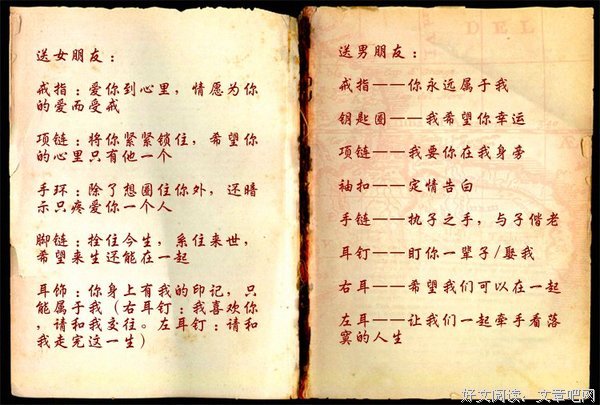 送女朋友：
戒指：爱你到心里，情愿为你
的爱而受戒
项链：将你紧紧锁住，希望你
的心里只有他一个
手环：除了想圈住你外，还暗
示只疼爱你一个人
脚链：拴住今生，系住来世，
希望来生还能在一起
耳饰：你身上有我的印记，只
能属于我（右耳钉：我喜欢你
，请和我交往。左耳钉：请和
我走完这一生）
DEL
送男朋友：
戒指——你永远属于我
钥匙圈——我希望你幸运
项链——我要你在我身旁
袖扣——定情告白
手链——执子之手，与子偕老
耳钉——盯你一辈子/娶我
右耳——希望我们可以在一起
左耳——让我们一起牵手看落
寞的人生
好文阅读，文章吧网